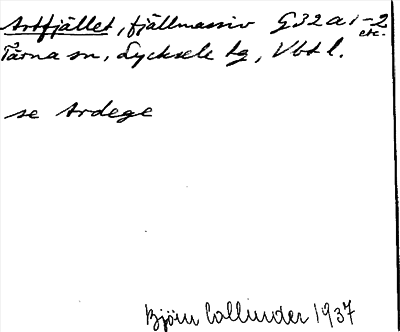 Artfjället, fjällmassiv G32 a 1-2
etc.
Tärna sn, Lycksele lg, Vbt l.
se Ardege
Björn Collinder 1937